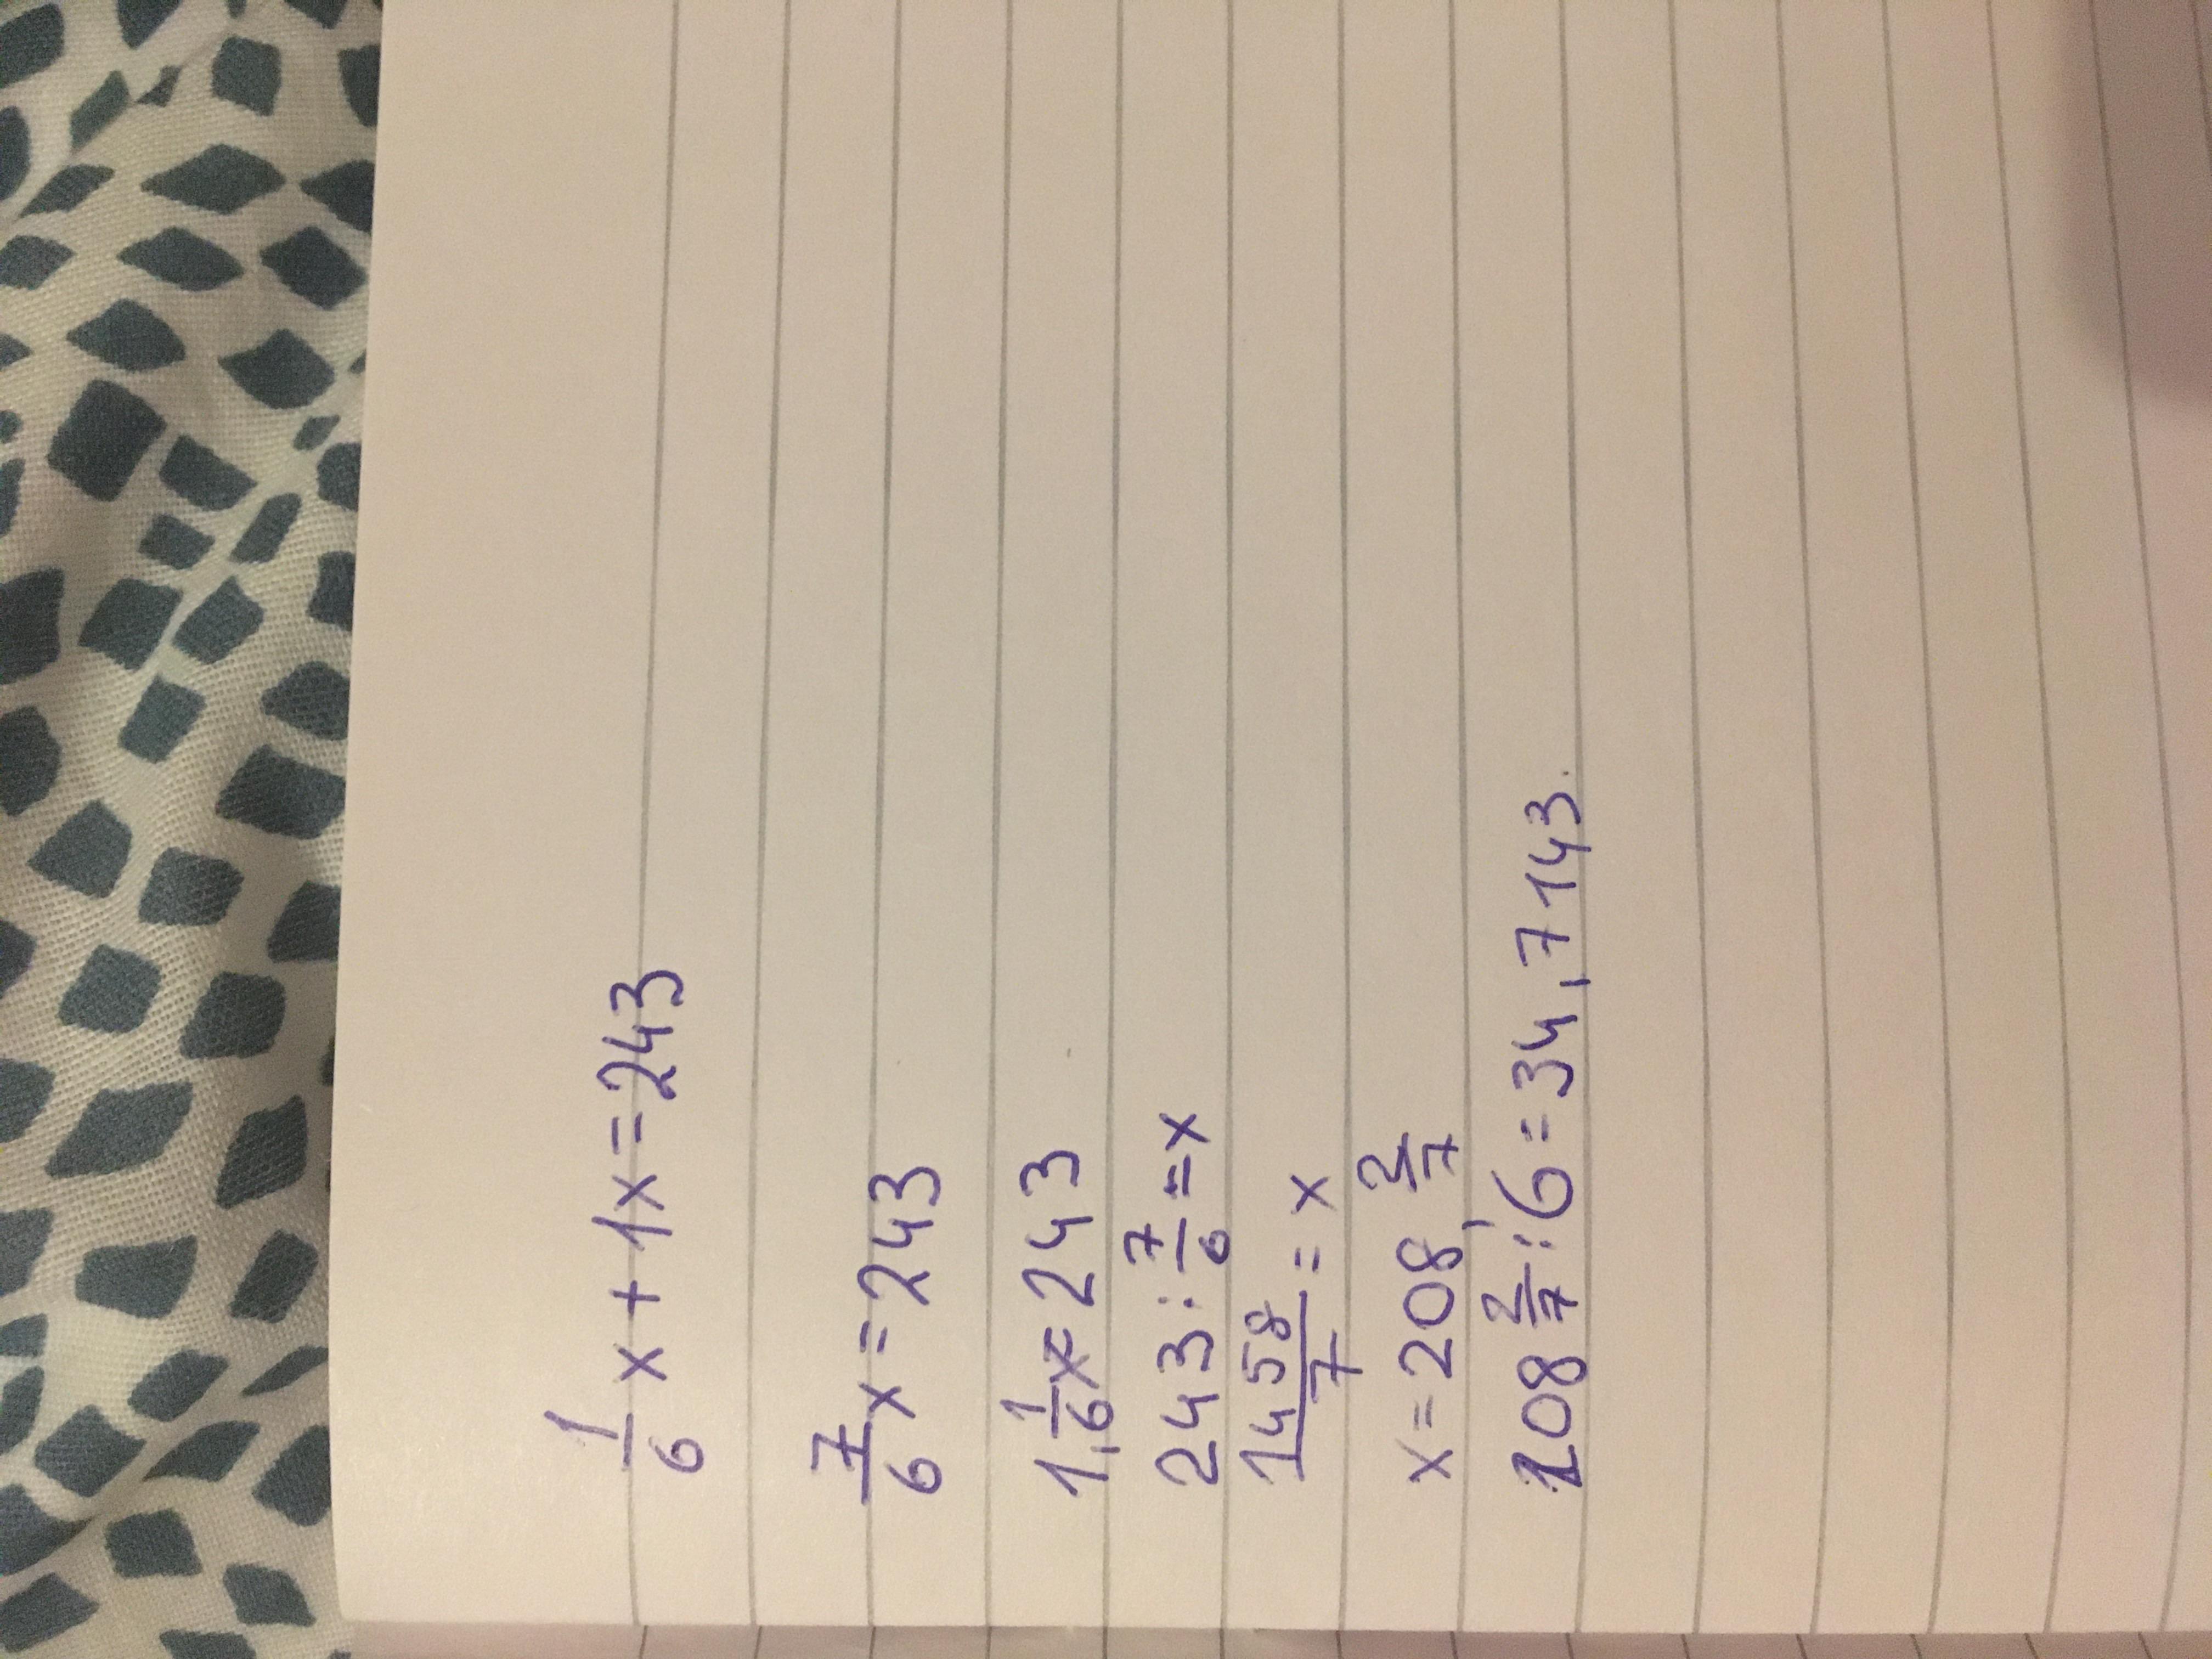 1/6 x + 1x = 243
7/6 x = 243
1,1/6 x = 243
243 : 7/6 = x
1458/7 = x
x = 208, 2/7
208 2/7 : 6 = 34,7143.